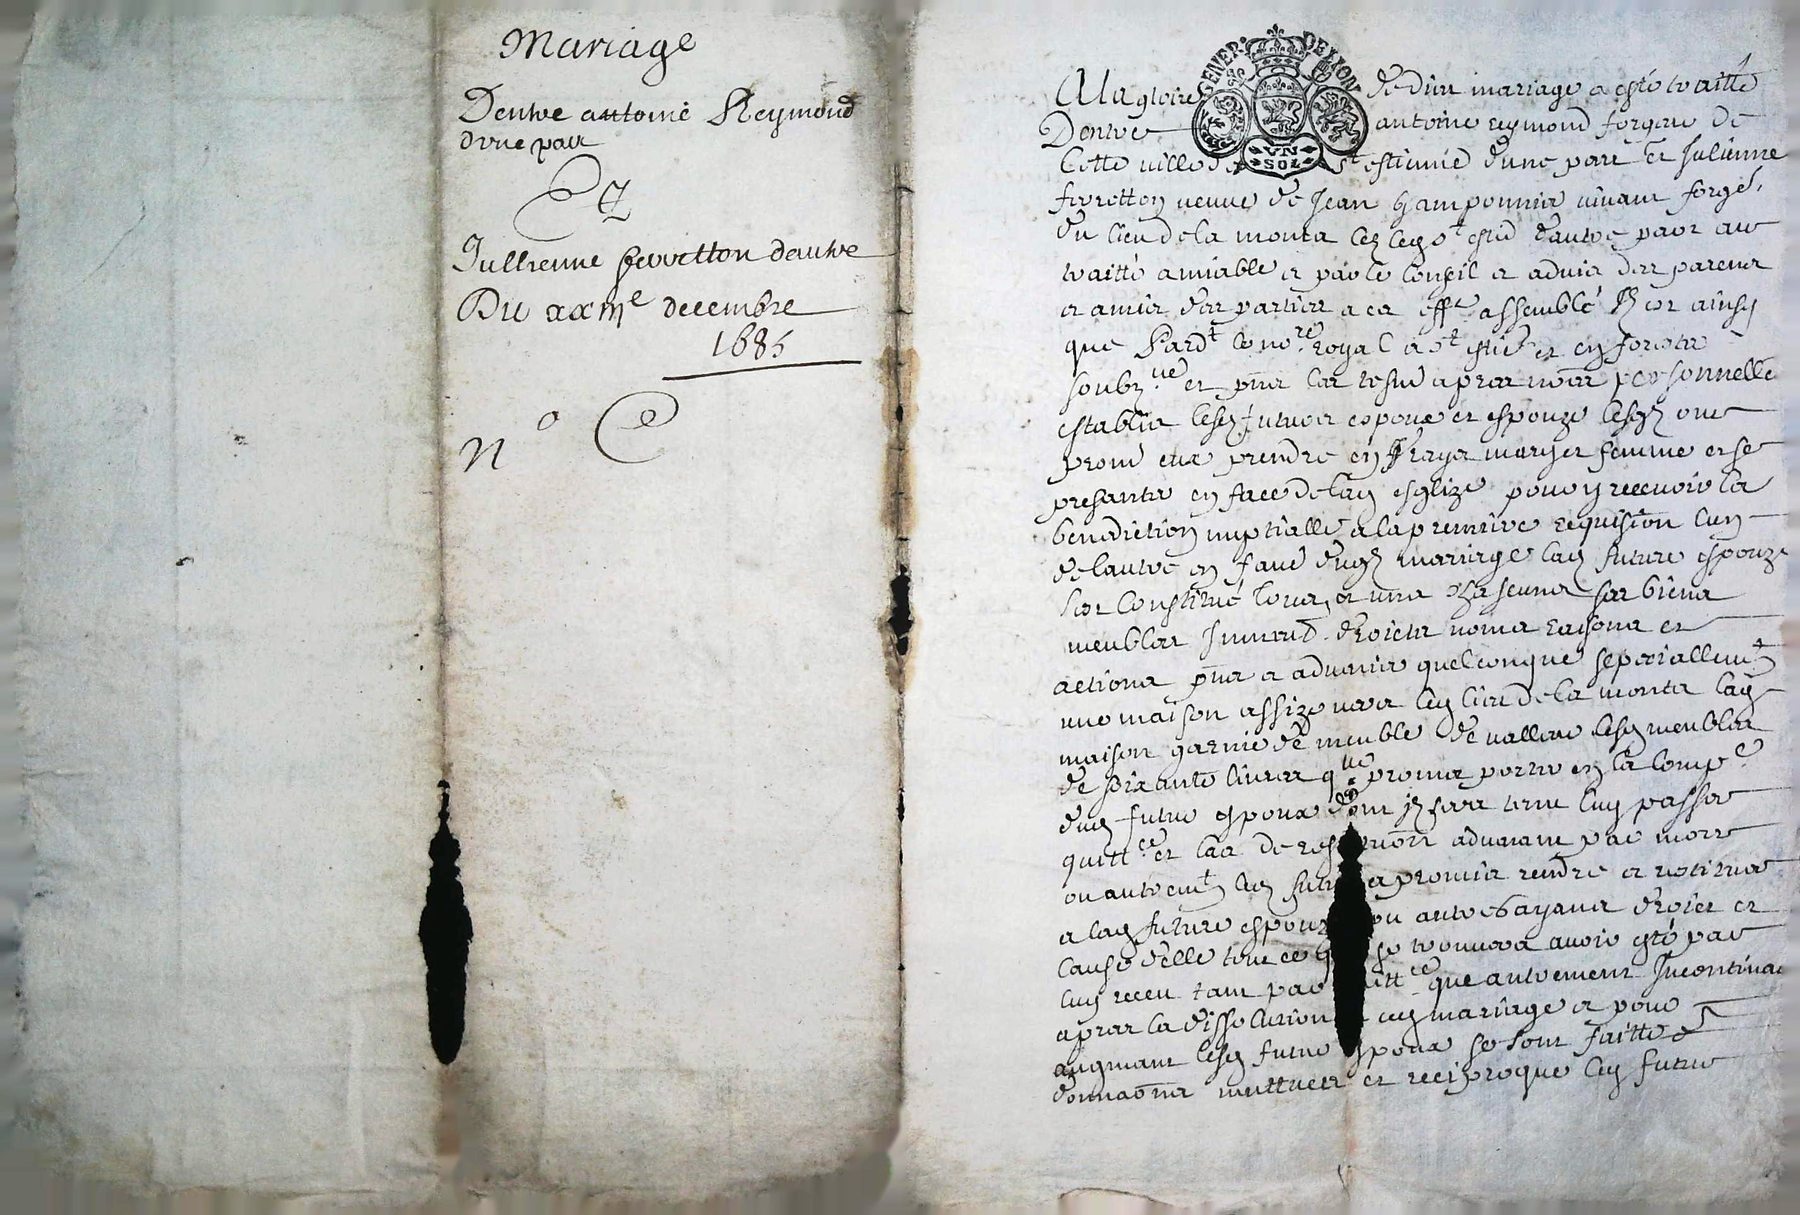 Mariage
Dentre antoine Reymond
dune part
Et
Jullienne ferrotton dautre
Du xxme decembre
1685
N o C
GENER. DE LION
VN
SOL
A la gloire de dieu mariage a esté traitté
Dentre antoine reymond forgeur de
Cette ville de st estienne dune part et Julienne
ferrotton veuve de Jean vivant forgeu
du lieu de la monta dautre part au
traitté amiable et par le Conseil et advis des parens
et amis des parties a cet efft assemblé Il est ainsy
que Pardt le nore royal a st estie et en forets
soubzne et pns les tesm apres nommes personnelle
establis lesd futurs espoux et espouze lesqz ont
prendre en mary et femme et se
presanter en face de lad esglize pour y recevoir la
benediction nuptialle a la premiere requision lun
de lautre en dud mariage lad future espouze
sest Constitué tous et uns chascuns ses biens
meubles Immeub droicts noms raisons et
actions pns a advenir quelconque sepeciallemt
une maison assize aud lieu de la monta lad
maison garnie de meuble de valleur lesd meubles
de soixante livres que promet porter en la Compe
dud futur espoux dont Il sera tenu luy passer
quittce et cas de advenant par mort
ou autremt led futur a promis rendre et restituer
a lad future espouze ou autres ayans droict et
Cause delle tout ce se trouvera avoir esté par
luy receu tant par quittce que autrement Incontinant
apres la dissolution dud mariage et pour
augmant lesd futur espoux se sont faitte
donnaons mutuel et reciproque led futur